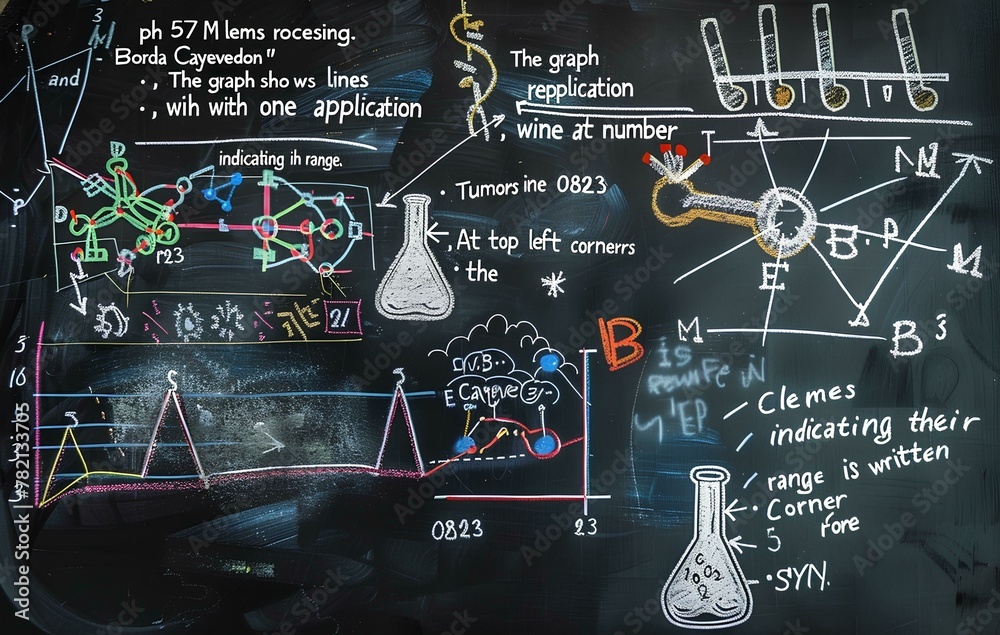 ph 57 M lems rocesing.
Borda Cayevedon"
and
·, The graph sho ws lines
·, wih with one application
The graph
repplication
, wine at number
indicating ih range.
· Tumors ine 0823
, At top left cornerrs
· the *
D
D
r23
21
3
16
S
3
3
E Caqeve
0823
23
T
E
B.P
M
M
B 3
B
is
Clemes
indicating their
range is written
· Corner
5 fore
· SYN.
2
Adobe Stock | #982133705
Adobe Stock